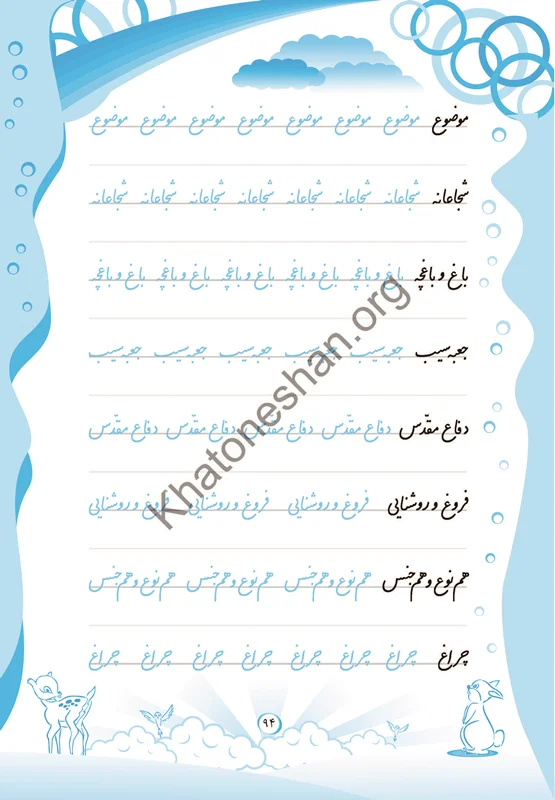 موضوع موضوع موضوع موضوع موضوع موضوع موضوع موضوع
شجاعانه شجاعانه شجاعانه شجاعانه شجاعانه شجاعانه شجاعانه شجاعانه
باغ و باغچه باغ و باغچه باغ و باغچه باغ و باغچه باغ و باغچه باغ و باغچه
جعبه سیب جعبه سیب جعبه سیب جعبه سیب جعبه سیب جعبه سیب
دفاع مقدّس دفاع مقدّس دفاع مقدّس دفاع مقدّس دفاع مقدّس
فروغ و روشنایی فروغ و روشنایی فروغ و روشنایی فروغ و روشنایی
هم نوع و هم جنس هم نوع و هم جنس هم نوع و هم جنس هم نوع و هم جنس
چراغ چراغ چراغ چراغ چراغ چراغ چراغ چراغ
۹۴
Khatoneshan.org